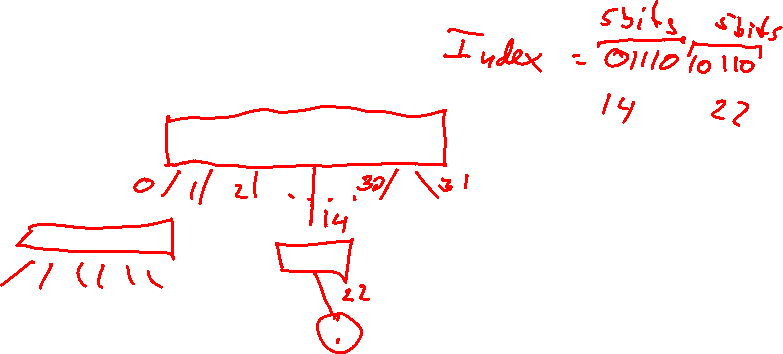 5bits 5bits
Index = 01110 10110
14 22
0 1 2 . . . 30 31
14
22